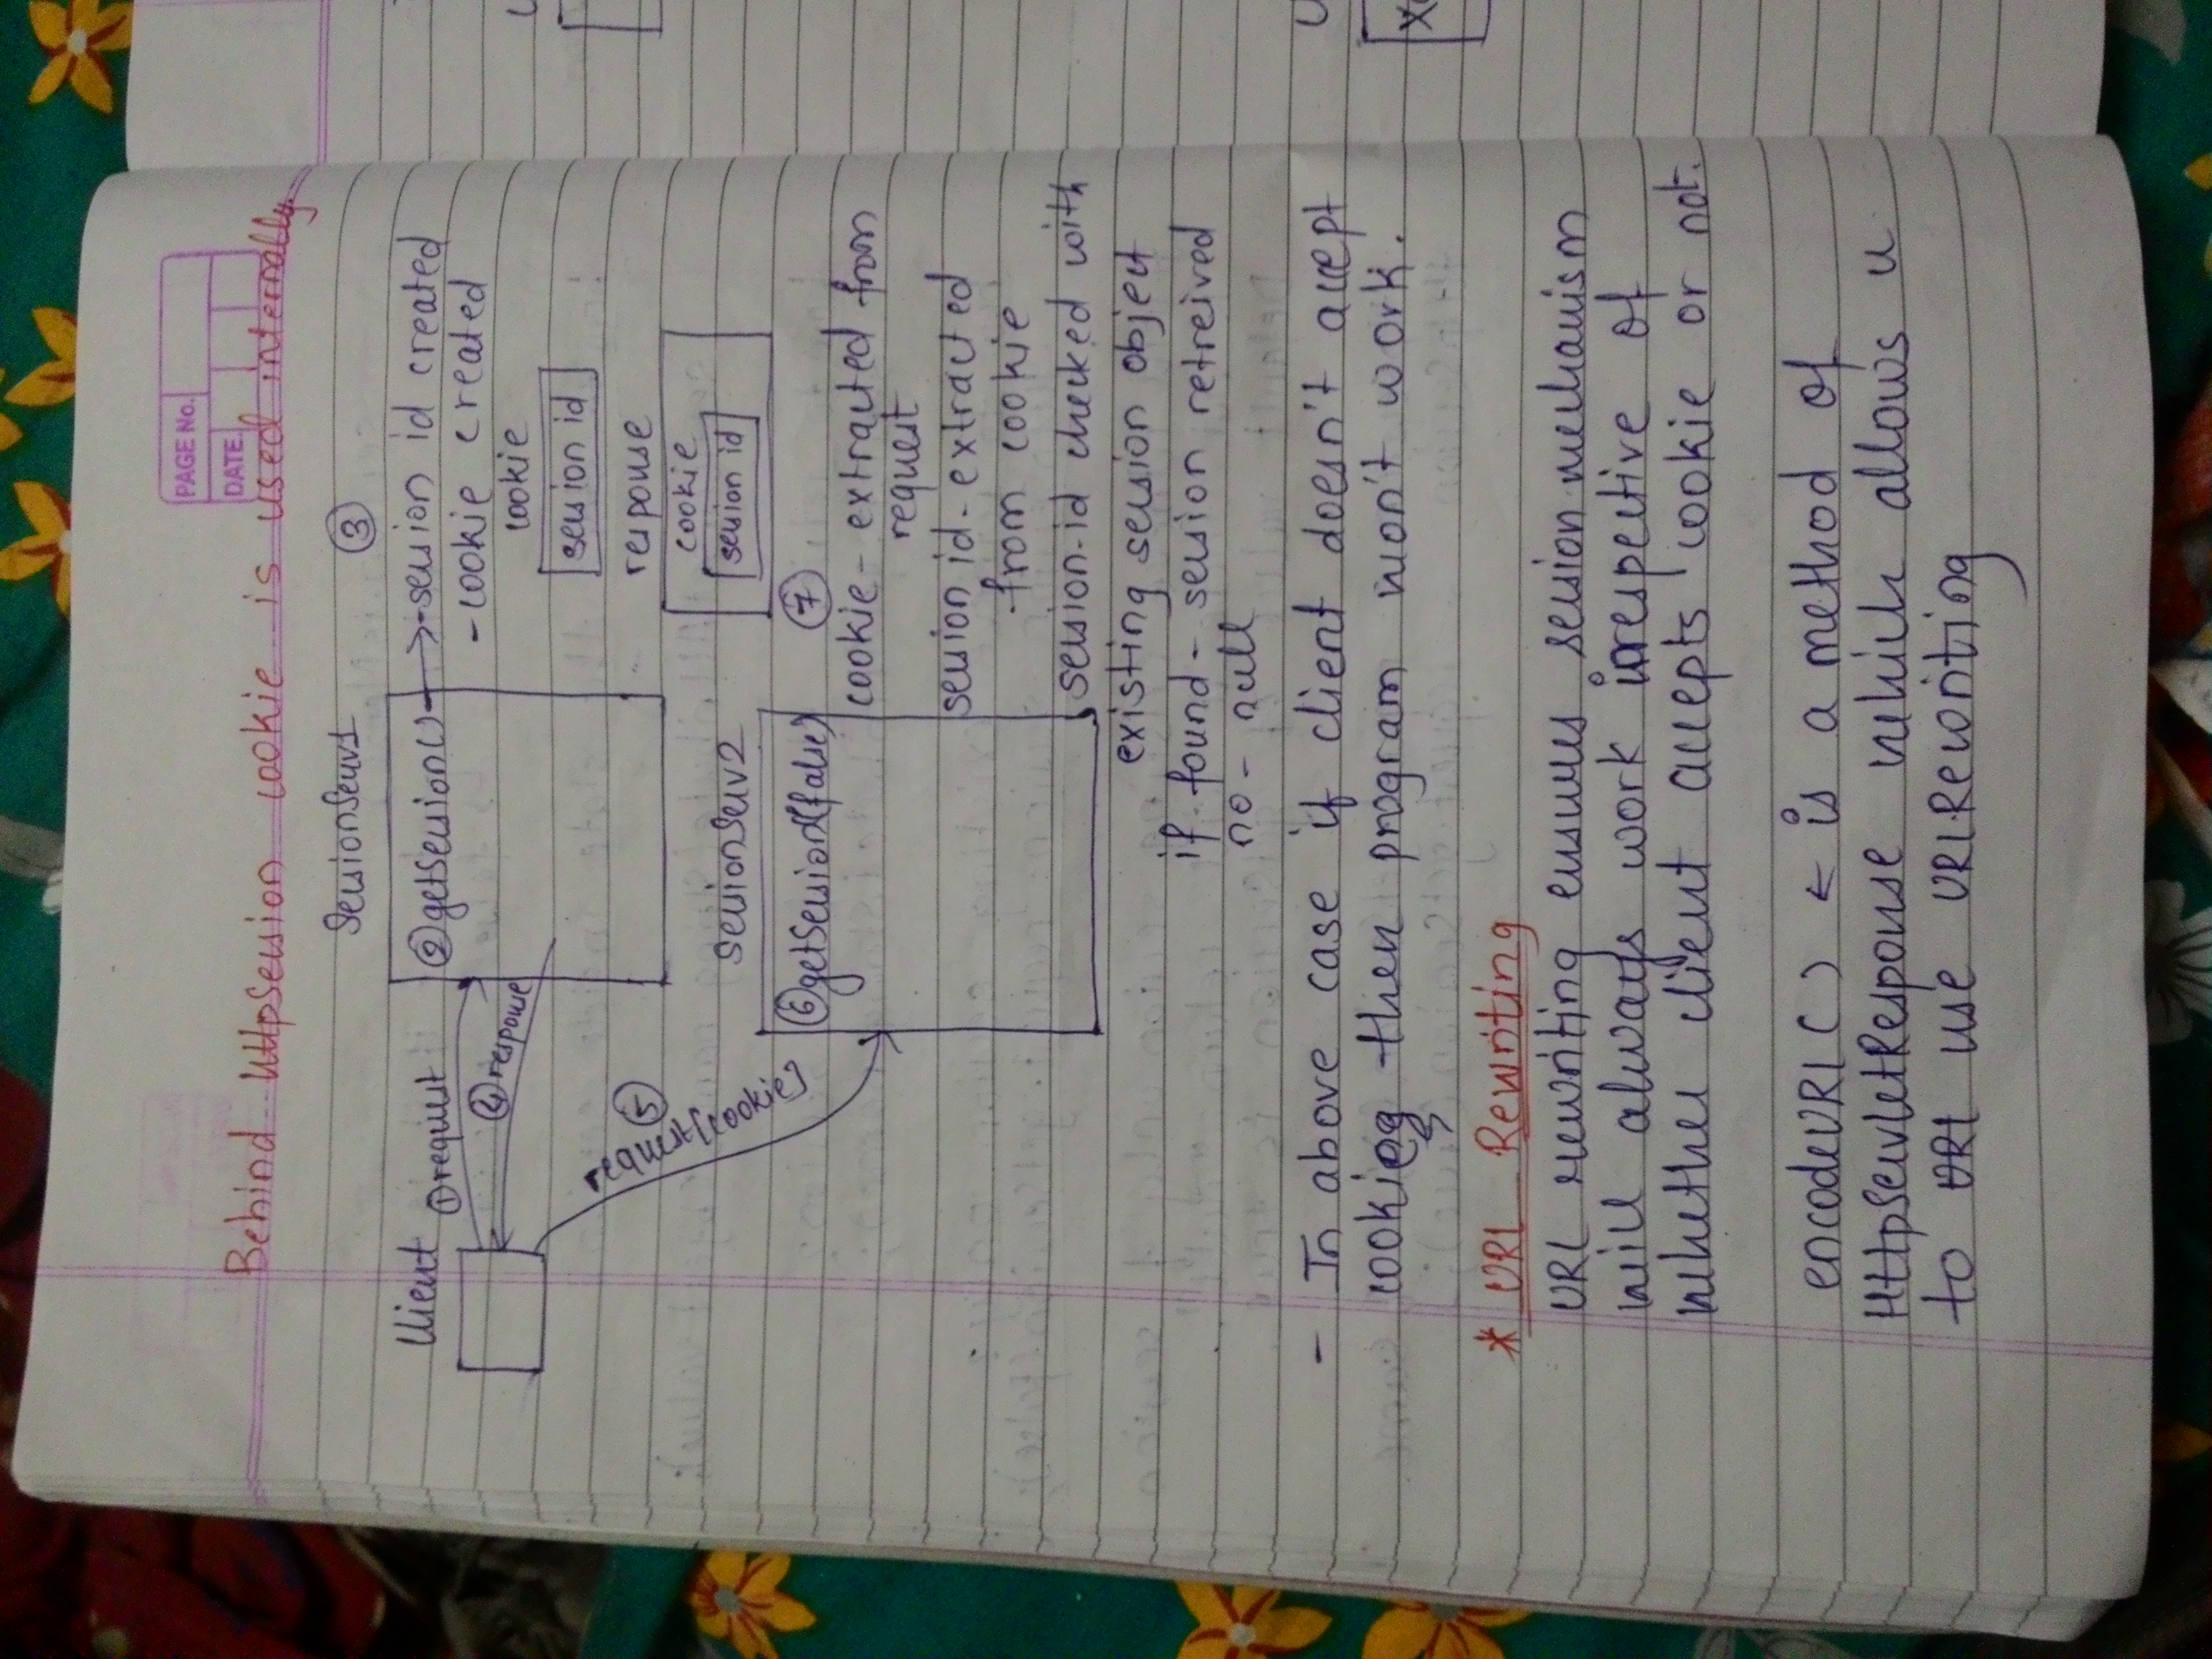 PAGE No.
DATE
Behind HttpSession cookie is used internally.
SessionServ1
③
Client
①request
②getSession()
→-session id created
-cookie created
④response
cookie
session id
response
⑤
request[cookie]
cookie
session id
SessionServ2
⑥getSession(false)
⑦
cookie - extracted from
request
session id - extracted
from cookie
session-id checked with
existing session object
if found - session retreived
no - null
- In above case if client doesn't accept
then program won't work.
* URL Rewriting
URL rewriting ensures session mechanism
will always work irrespective of
whether client accepts cookie or not.
encodeURL() ← is a method of
HttpServletResponse which allows u
to URL use URLRewriting